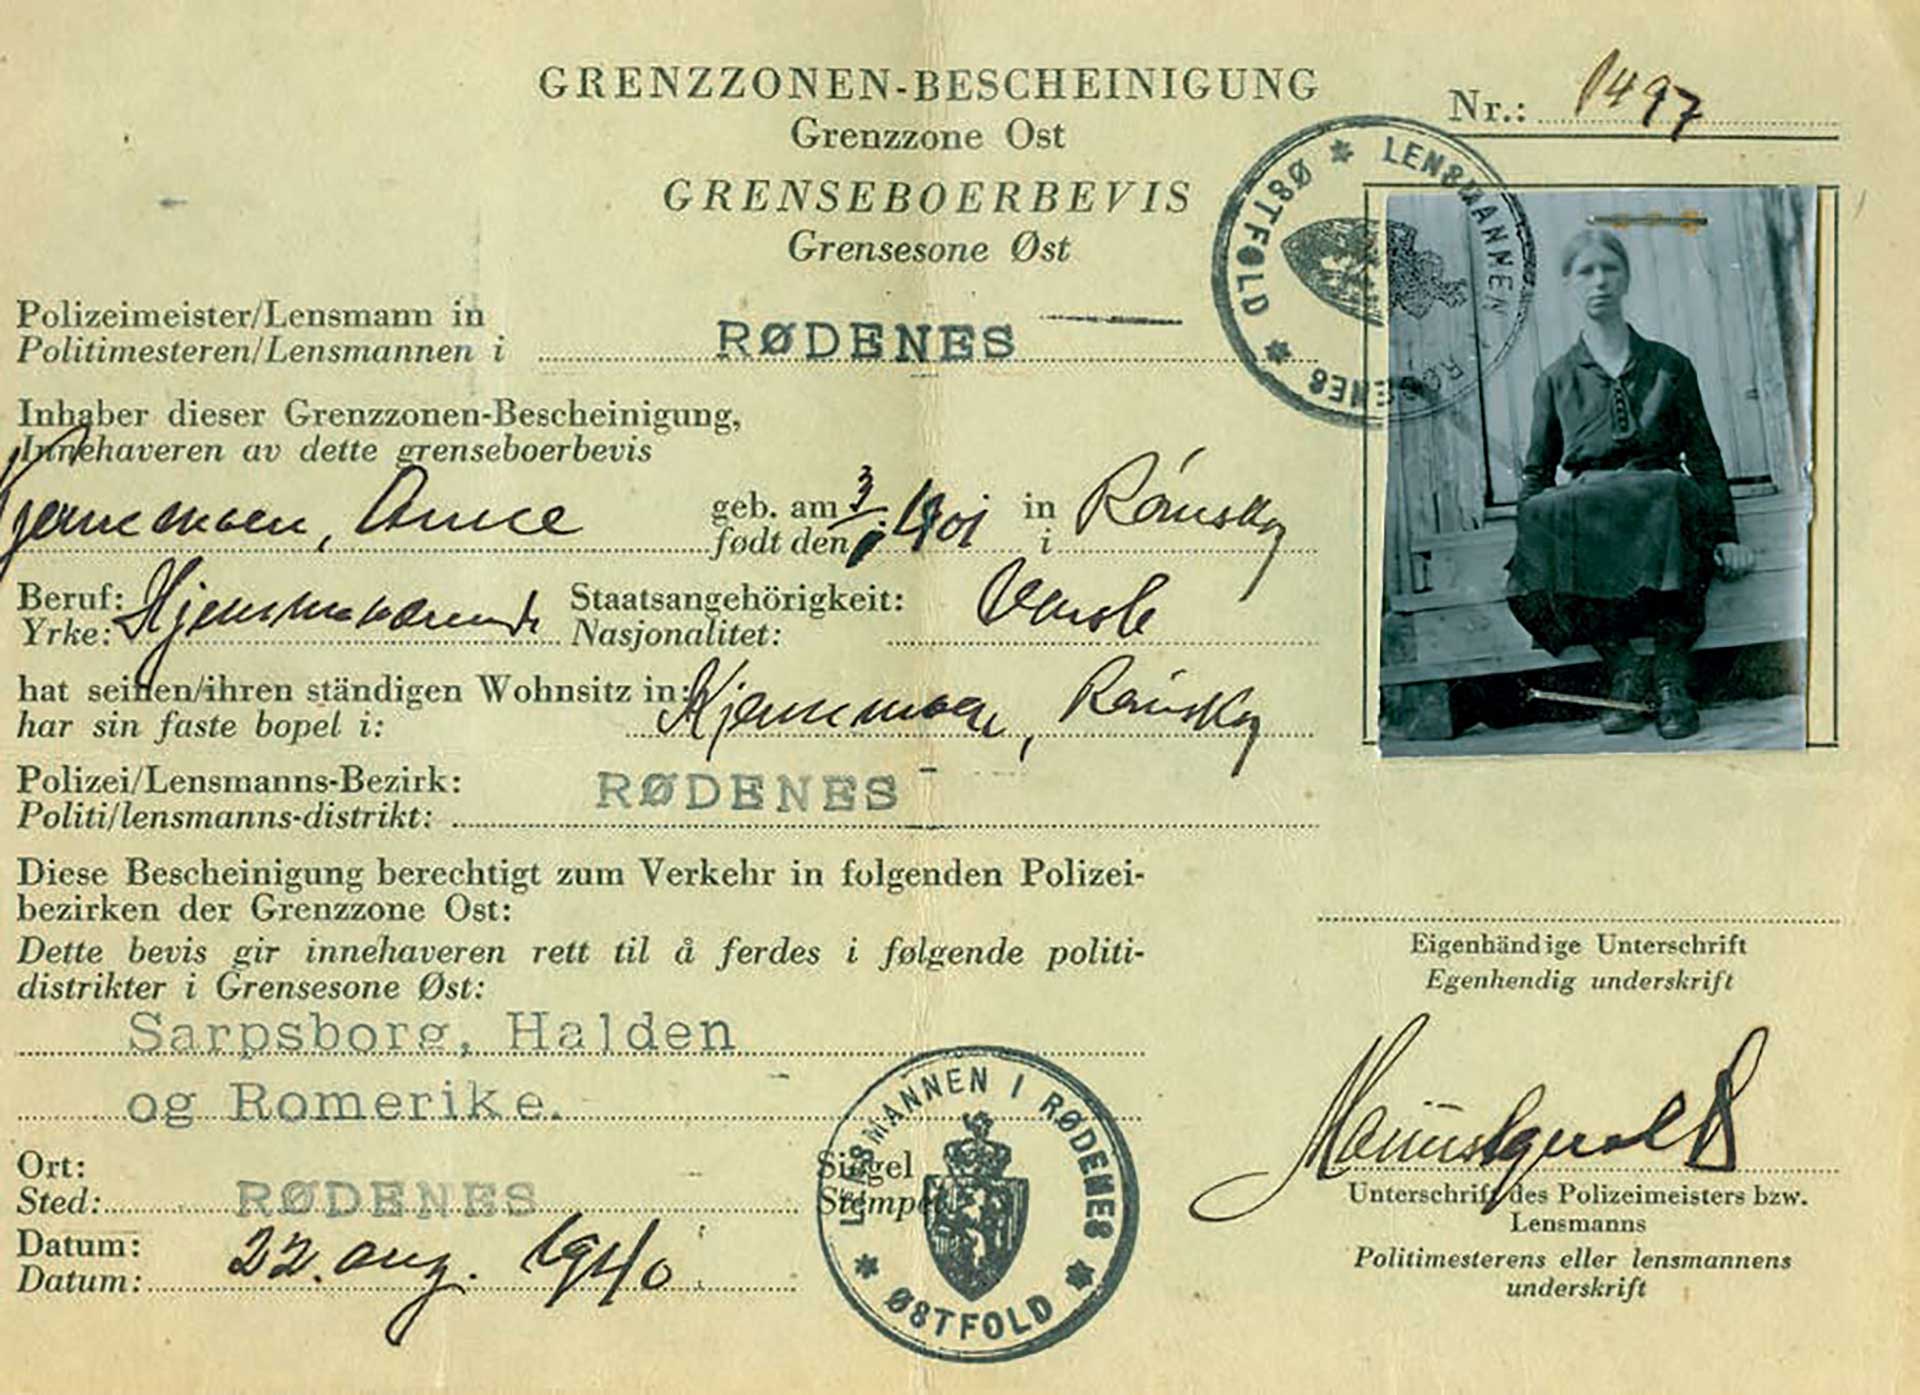 GRENZZONEN-BESCHEINIGUNG
Grenzzone Ost
GRENSEBOERBEVIS
Grensesone Øst
Nr.: 1497
LENSMANNEN I RØDENES * ØSTFOLD *
Polizeimeister/Lensmann in
Politimesteren/Lensmannen i RØDENES
Inhaber dieser Grenzzonen-Bescheinigung,
Innehaveren av dette grenseboerbevis
Kjennemoen, Anne geb. am 3/ 1901 in Rømskog
født den i
Beruf: Hjemmeværende Staatsangehörigkeit: Norsk
Yrke: Nasjonalitet:
hat seinen/ihren ständigen Wohnsitz in: Kjennemoen, Rømskog
har sin faste bopel i:
Polizei/Lensmanns-Bezirk: RØDENES
Politi/lensmanns-distrikt:
Diese Bescheinigung berechtigt zum Verkehr in folgenden Polizei-
bezirken der Grenzzone Ost:
Dette bevis gir innehaveren rett til å ferdes i følgende politi-
distrikter i Grensesone Øst:
Sarpsborg, Halden
og Romerike.
Ort:
Sted: RØDENES
Datum: 22. aug. 1940
Datum:
Siegel
Stempel
LENSMANNEN I RØDENES * ØSTFOLD *
Eigenhändige Unterschrift
Egenhendig underskrift
Unterschrift des Polizeimeisters bzw.
Lensmanns
Politimesterens eller lensmannens
underskrift